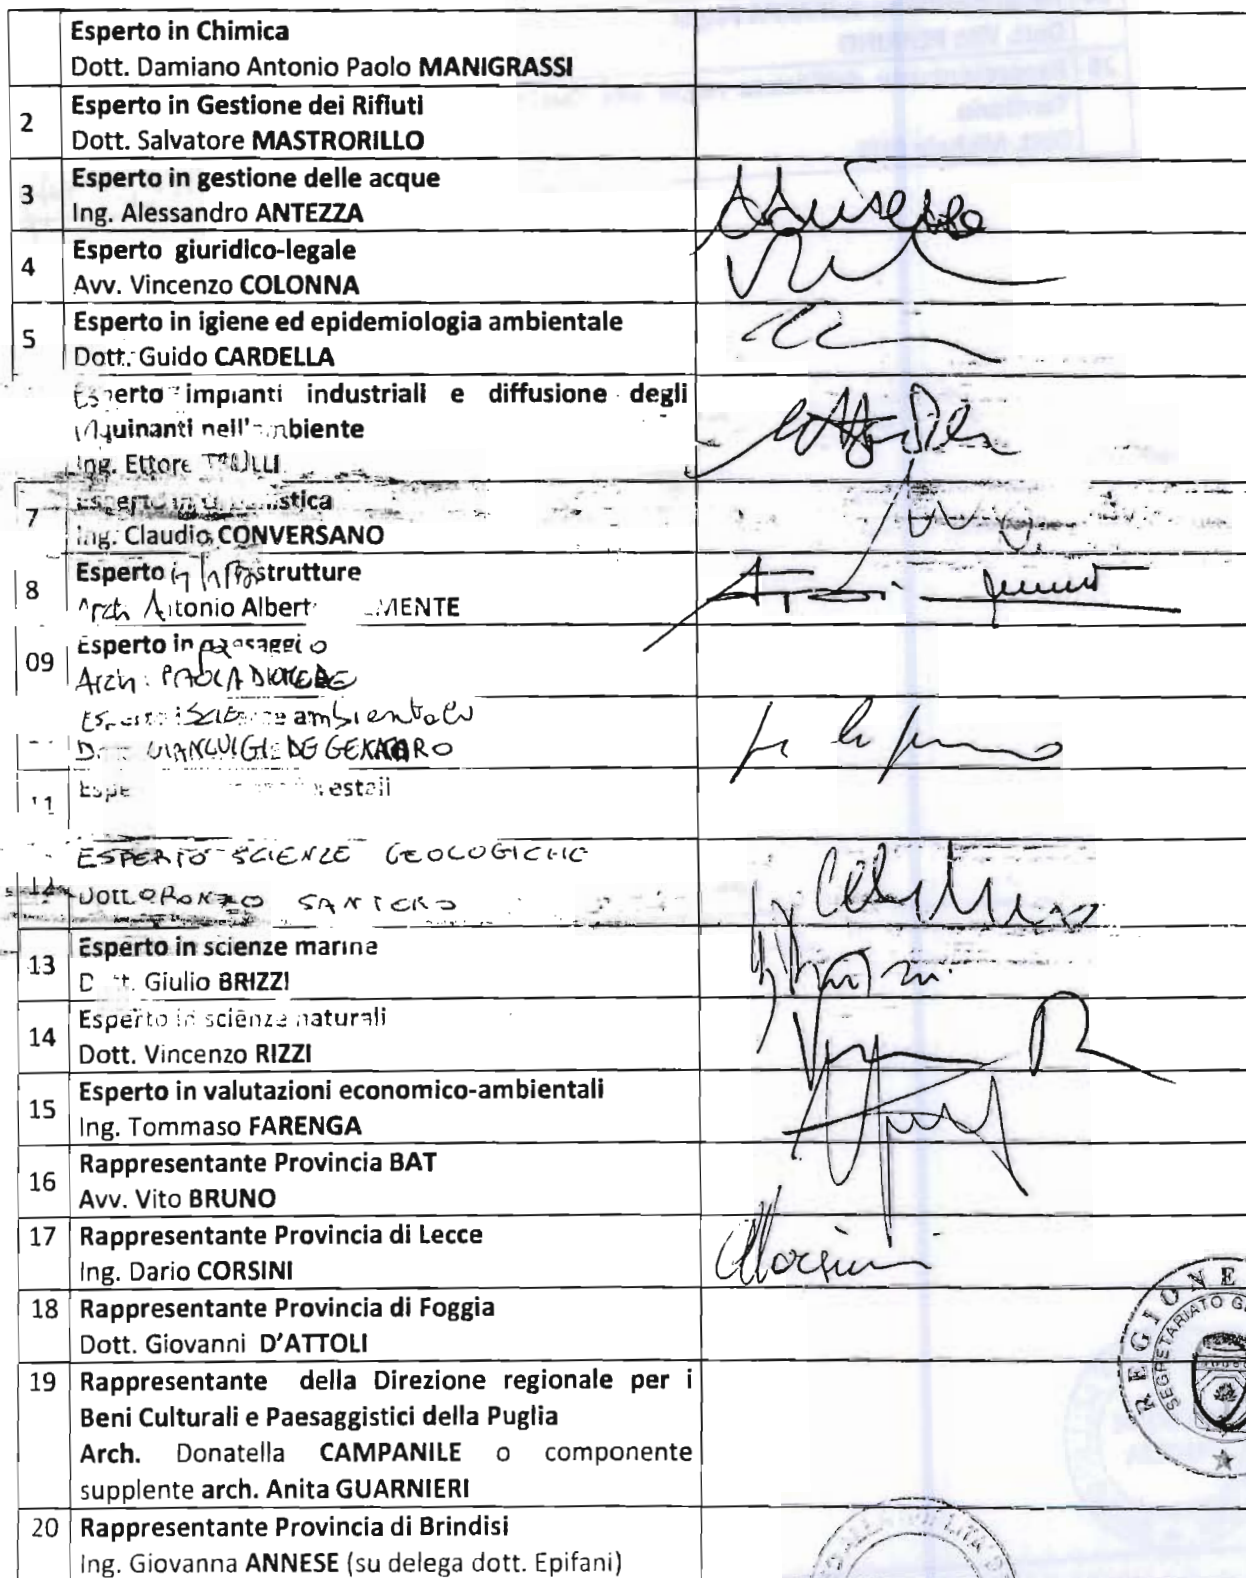 Esperto in Chimica
Dott. Damiano Antonio Paolo MANIGRASSI
2
Esperto in Gestione dei Rifiuti
Dott. Salvatore MASTRORILLO
3
Esperto in gestione delle acque
Ing. Alessandro ANTEZZA
4
Esperto giuridico-legale
Avv. Vincenzo COLONNA
5
Esperto in igiene ed epidemiologia ambientale
Dott. Guido CARDELLA
Esperto impianti industriali e diffusione degli
inquinanti nell'ambiente
Ing. Ettore TRULLI
7
Esperto in
Ing. Claudio CONVERSANO
8
Esperto in Infrastrutture
Arch Antonio Albert
09
Esperto in paesaggio
Arch. PAOLA DIOMEDE
Esperto Scienze ambientali
GIANLUIGI DE GENNARO
11
12
ESPERTO SCIENZE GEOLOGICHE
Dott. ORONZO SANTORO
13
Esperto in scienze marine
Dott. Giulio BRIZZI
14
Esperto in scienze naturali
Dott. Vincenzo RIZZI
15
Esperto in valutazioni economico-ambientali
Ing. Tommaso FARENGA
16
Rappresentante Provincia BAT
Avv. Vito BRUNO
17
Rappresentante Provincia di Lecce
Ing. Dario CORSINI
18
Rappresentante Provincia di Foggia
Dott. Giovanni D'ATTOLI
19
Rappresentante della Direzione regionale per i
Beni Culturali e Paesaggistici della Puglia
Arch. Donatella CAMPANILE o componente
supplente arch. Anita GUARNIERI
20
Rappresentante Provincia di Brindisi
Ing. Giovanna ANNESE (su delega dott. Epifani)
REGIONE
SEGRETARIATO G